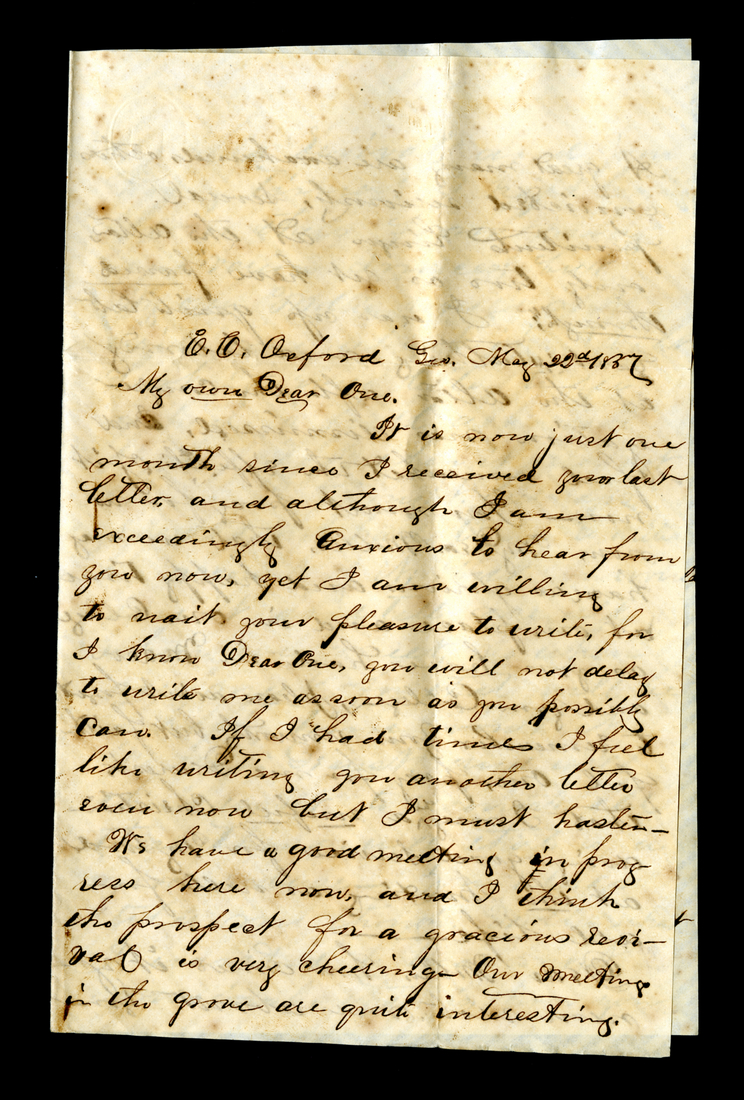 E. C. Oxford Geo. May 22nd 1857
My own Dear One.
It is now just one
month since I received your last
letter, and although I am
exceedingly Anxious to hear from
you now, yet I am willing
to wait your pleasure to write, for
I know Dear One, you will not delay
to write me as soon as you possibly
Can. If I had time I feel
like writing you another letter
even now but I must hasten—
We have a good meeting in prog-
ress here now, and I think
the prospect for a gracious revi-
val is very cheering— Our meetings
in the grove are quite interesting.